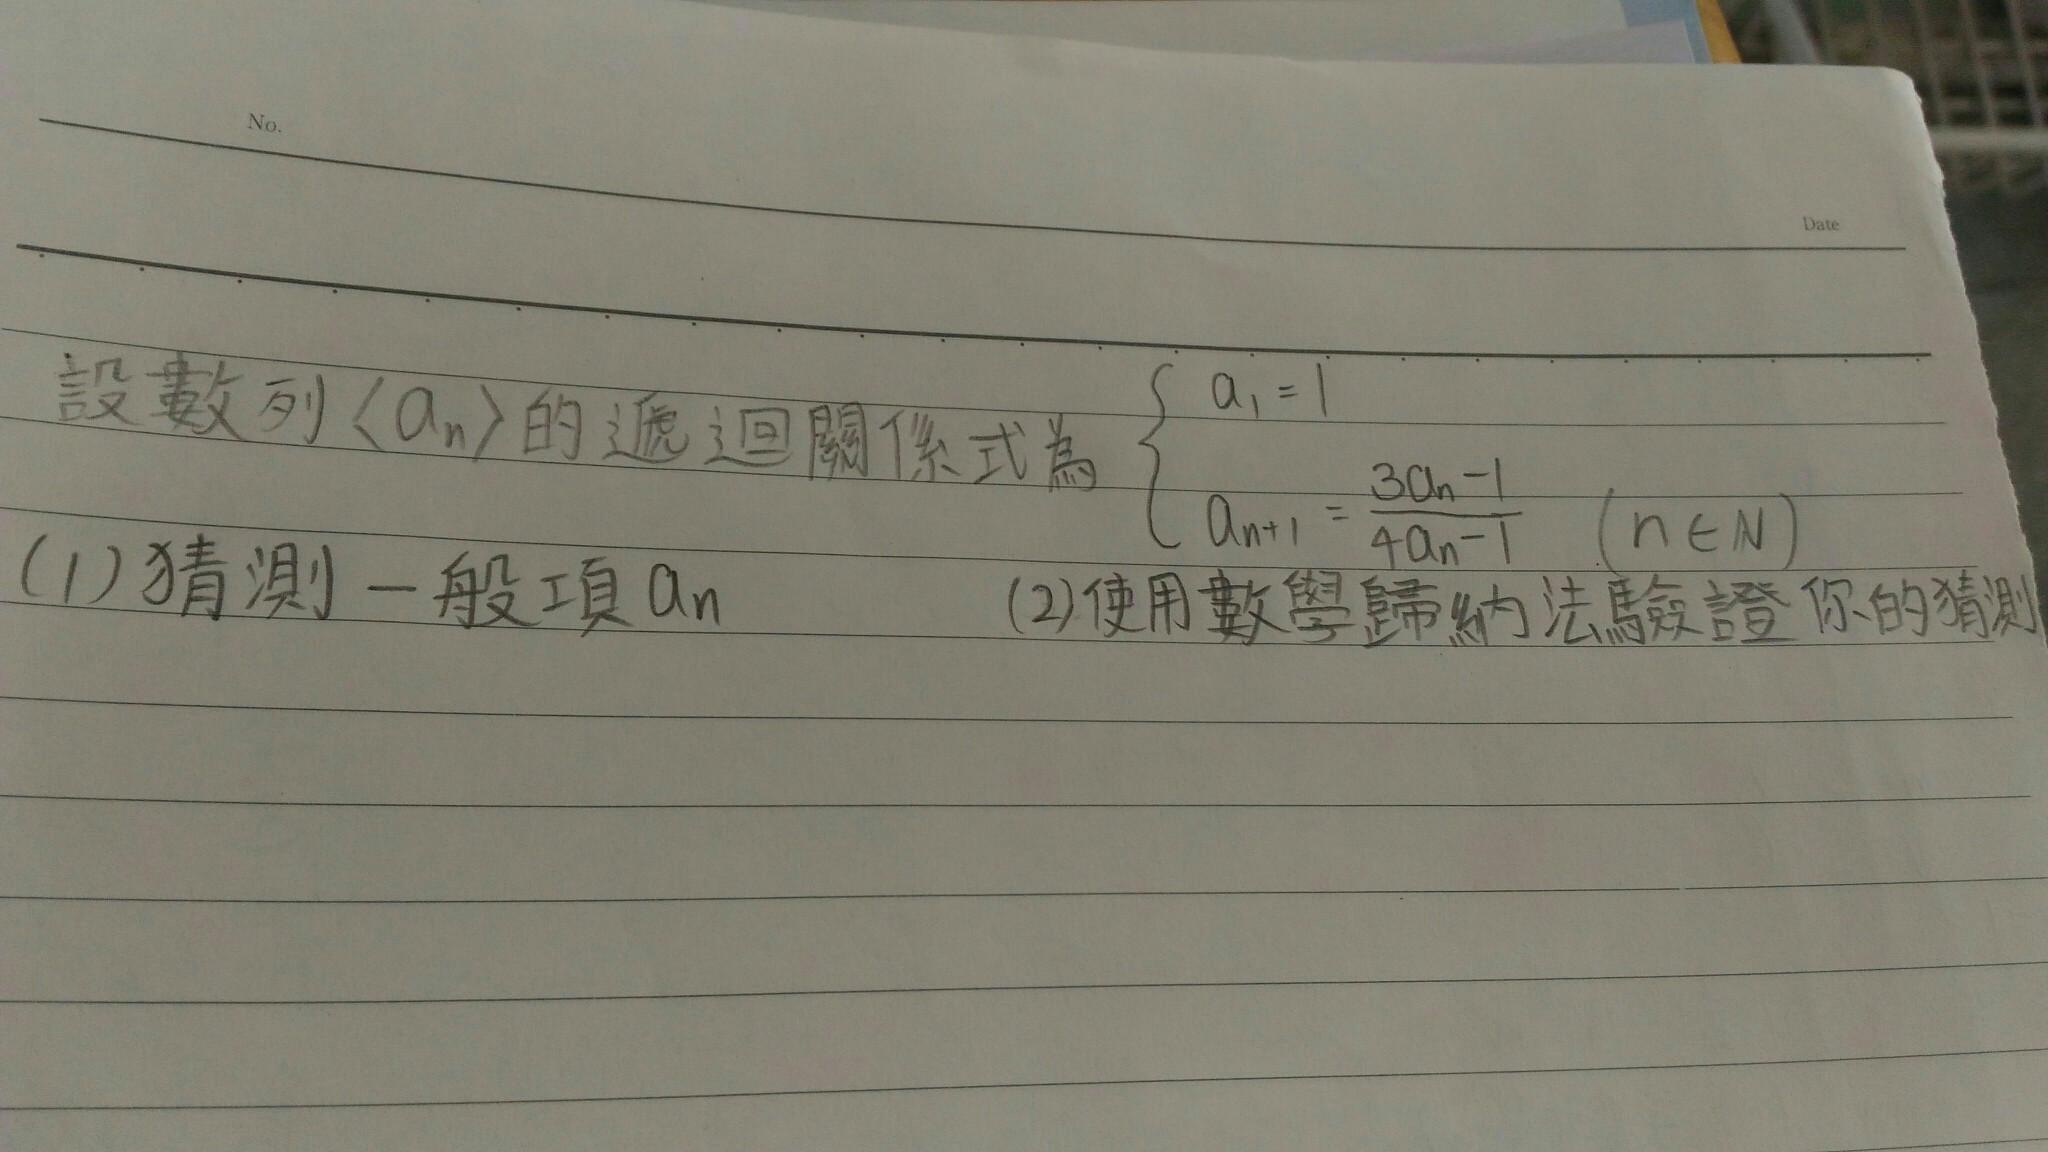 No.
Date
設數列〈aₙ〉的遞迴關係式為 { a₁ = 1
aₙ₊₁ = (3aₙ-1)/(4aₙ-1) (n∈N)
(1) 猜測一般項 aₙ (2) 使用數學歸納法驗證你的猜測